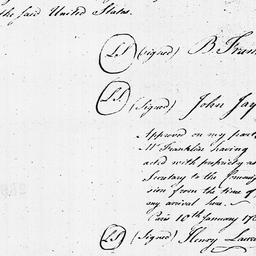 the said United States.
L.S. (signed) B. Fran
L.S. (Signed) John Jay
Approved on my part
Mr Franklin having
acted with propriety as
Secretary to the Commis
sion from the time of
my arrival here.
Paris 10th January 178
L.S. (Signed) Henry Laure